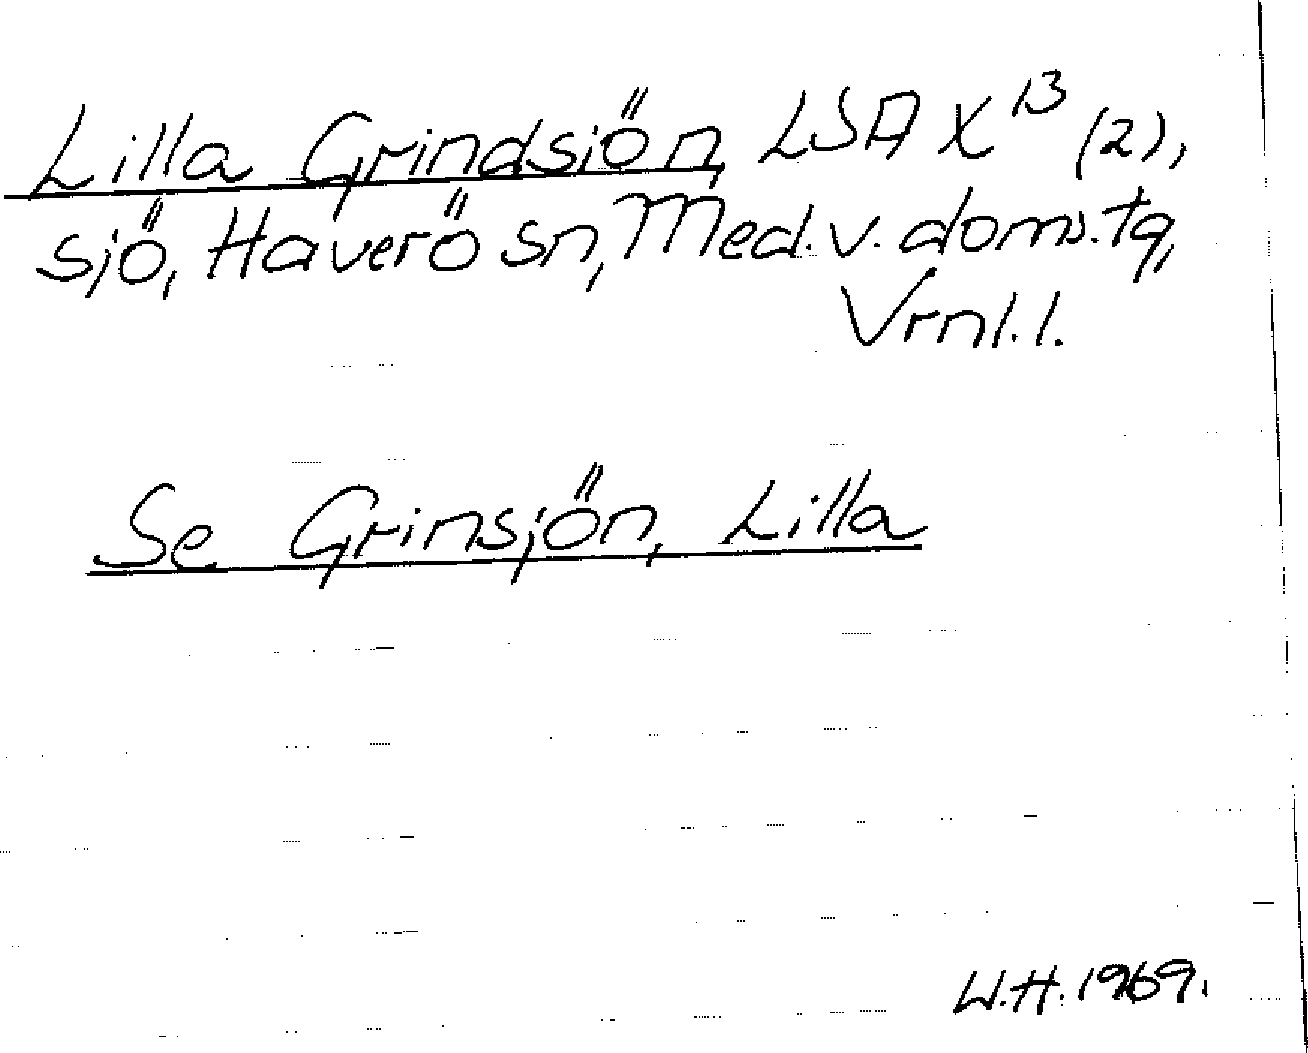 Lilla Grindsiön, LSA X¹³ (2),
sjö, Haverö sn, Med. v. doms. tg,
Vrnl. l.
Se Grinsjön, Lilla
W.H. 1969.